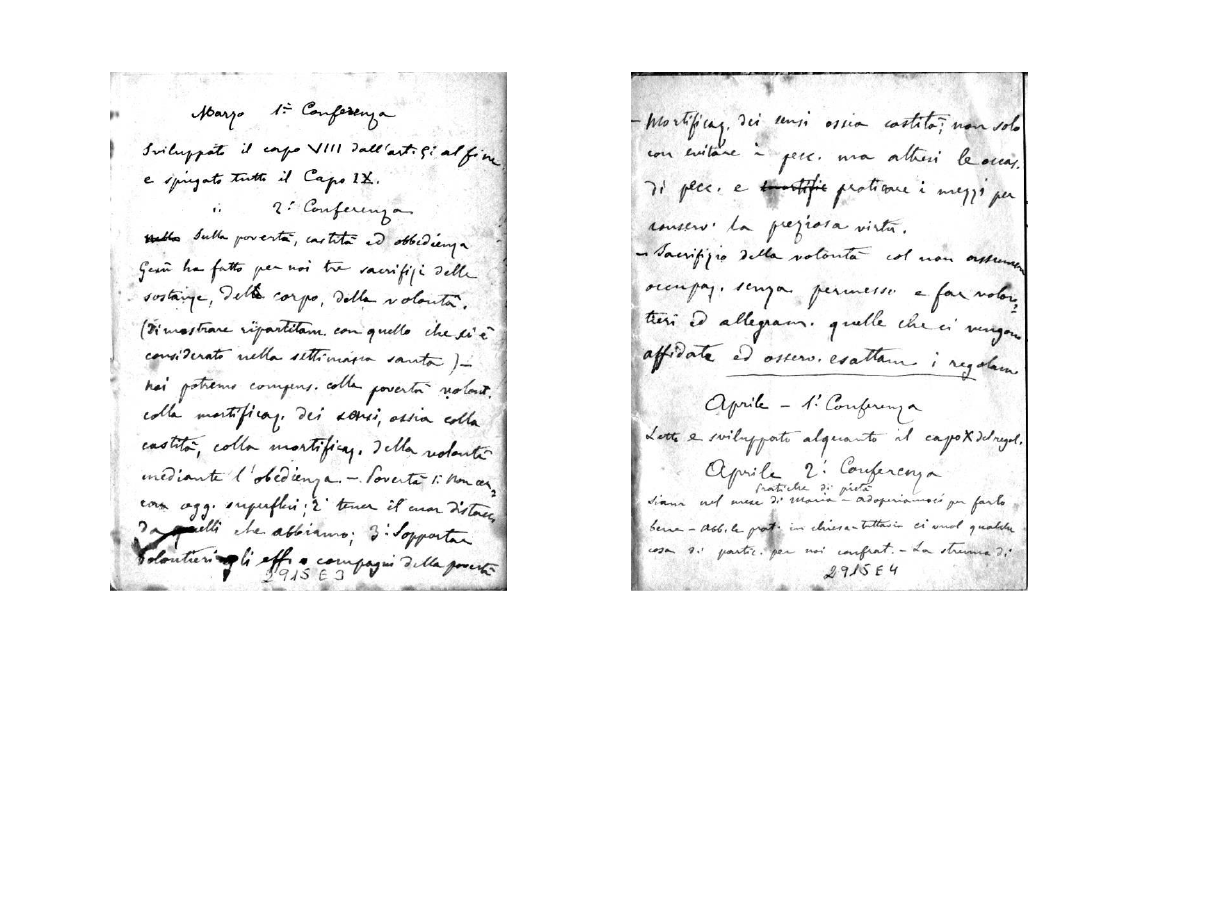 Marzo 1ª Conferenza
Sviluppato il capo VIII dall'art. 5i al fine
e spiegato tutto il Capo IX.
ii 2ª Conferenza
nella Sulla povertà, castità ed obbedienza
Gesù ha fatto per noi tre sacrifizi delle
sostanze, del corpo, della volontà.
(Dimostrare ripartitam. con quello che si è
considerato nella settimana santa) —
noi potremo compens. colla povertà volont.
colla mortificaz. dei sensi, ossia colla
castità, colla mortificaz. della volontà
mediante l'obedienza. — Povertà 1: Non cer=
care ogg. superflui; 2: tener il cuor distacc
da quelli che abbiamo; 3: Sopportar
volontieri gli eff. e compagni della povertà
2915 E 3
— Mortificaz. dei sensi ossia castità; non solo
con evitare i pecc. ma altresì le occas.
di pecc. e mortific praticare i mezzi per
conserv. la preziosa virtù.
— Sacrifizio della volontà col non assumer
occupaz. senza permesso e far volon=
tieri ed allegram. quelle che ci vengono
affidate ed osserv. esattam i regolam.
Aprile — 1ª Conferenza
Letto e sviluppato alquanto il capo X del regol.
Aprile 2ª Conferenza
Pratiche di pietà
Siam nel mese di Maria — adoperiamoci per farlo
bene — Abb. le prat. in chiesa tuttavia ci vuol qualche
cosa di partic. per noi confrat. — La strenna di
2915 E 4